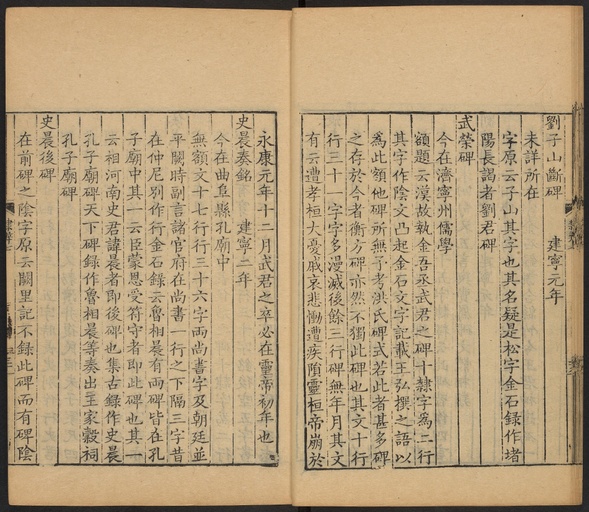 劉子山斷碑 建寧元年
未詳所在
字原云子山其字也其名疑是松字金石錄作堵
陽長謁者劉君碑
武榮碑
今在濟寧州儒學
額題云漢故執金吾丞武君之碑十隸字為二行
其字作陰文凸起金石文字記載王弘撰之語以
為此額他碑所無予考洪氏碑式若此者甚多碑
之存於今者衡方碑亦然不獨此碑也其文十行
行三十一字字多漫滅後餘三行碑無年月其文
有云遭孝桓大憂戚哀悲慟遭疾隕靈桓帝崩於
永康元年十二月武君之卒必在靈帝初年也
史晨奏銘 建寧二年
今在曲阜縣孔廟中
無額文十七行行三十六字兩尚書字及朝廷並
平闕時副言諸官府在尚書一行之下隔三字昔
在仲尼別作行金石錄云魯相晨有兩碑皆在孔
子廟中其一云臣蒙恩受符守者即此碑也其一
云相河南史君諱晨者即後碑也集古錄作史晨
孔子廟碑天下碑錄作魯相晨等奏出王家穀祠
孔子廟碑
史晨後碑
在前碑之陰字原云闕里記不錄此碑而有碑陰